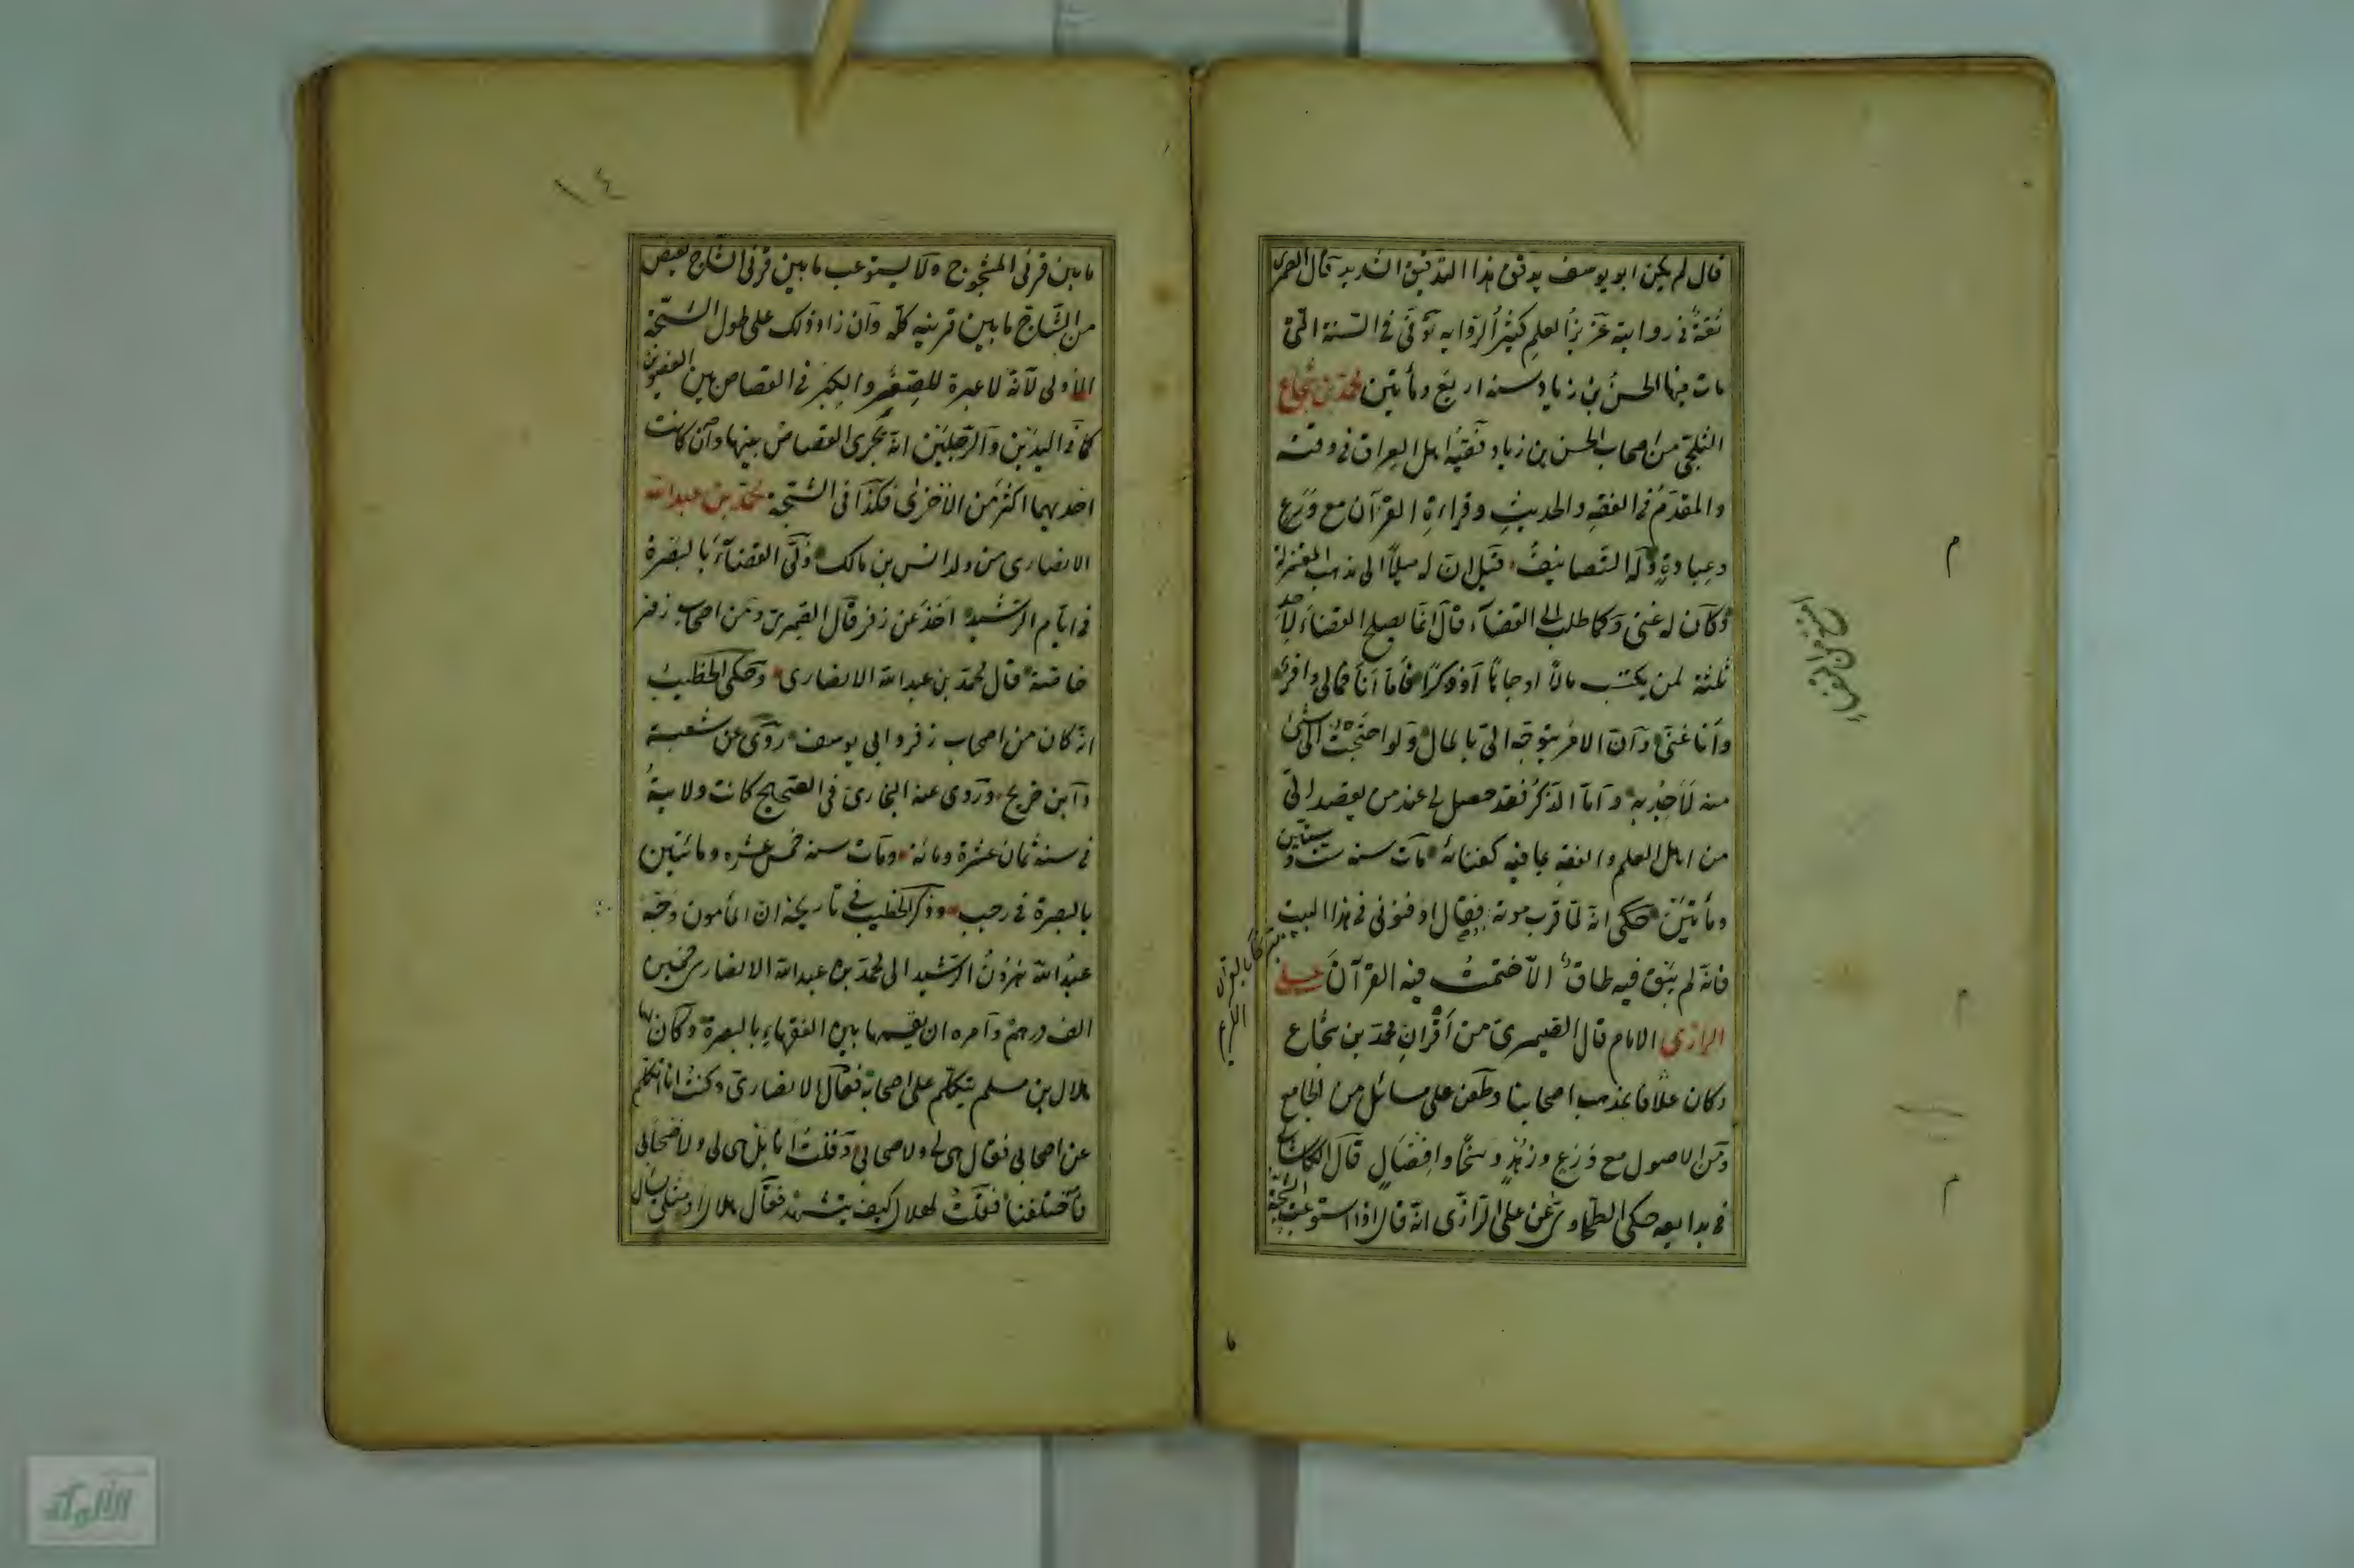 قال لم يكن ابو يوسف يدقق هذا التدقيق الشديد قال الصمرى
ثقة فى روايته عزيز العلم كثير الرواية توفى فى السنة التى
مات فيها الحسن بن زياد سنة اربع ومأتين محمد بن شجاع
الثلجى من اصحاب الحسن بن زياد فقيه اهل العراق فى وقته
والمقدم فى الفقه والحديث وقراءة القرآن مع ورع
وعبادة وله التصانيف قيل ان له ميلا الى مذهب المعتزلة
وكان له غنى وكما طلب الى القضآء قال انما يصلح القضاء لاحد
ثلثة لمن يكتسب مالا او جاها او ذكرا فاما انا فمالى وافر
وانا غنى وان الامر يتوجه الى بالمال ولو احتجت الى شئ
منه لاخذ به واما الذكر فقد حصل لى عند من يقصد الى
من اهل العلم والفقه بما فيه كفاية مات سنة ست وستين
ومأتين حكى انه لما قرب موته فقال ادفنونى فى هذا البيت
فانه لم يبق فيه طاق الا ختمت فيه القرآن على
الرازى الامام قال الصيمرى من أقران محمد بن شجاع
وكان علافا بمذهب اصحابنا وطعن على مسائل من الجامع
ومن الاصول مع ورع وزهد وسخا وافضال قال الكاسانى
فى بدايعه حكى الطحاوى عن على الرازى انه قال اذا استوعب الشجة
م
م
م
ما بين قرنى المشجوج ولا يستوعب ما بين قرنى الشاج يقتص
من الشاج ما بين قرنيه كله وان زاد ذلك على طول الشجة
الاولى لانه لا عبرة للصغر والكبر فى القصاص بين العضوين
كما فى اليدين والرجلين انه يجرى القصاص بينهما وان كانت
احديهما اكثر من الاخرى فكذا فى الشجة محمد بن عبدالله
الانصارى من ولد انس بن مالك ولى القضآء بالبصرة
فى ايام الرشيد اخذ عن زفر قال الصيمرى ومن اصحاب زفر
خاصة قال محمد بن عبدالله الانصارى وحكى الخطيب
انه كان من اصحاب زفر وابى يوسف روى عن شعبة
وابن جريج وروى عنه البخارى فى الصحيح كانت ولايته
فى سنة ثمان عشرة ومائة ومات سنة خمس عشره ومائتين
بالبصرة فى رجب وذكر الخطيب فى تاريخه ان المأمون وجه
عبدالله هرون الرشيد الى محمد بن عبدالله الانصارى خمسين
الف درهم وامره ان يقسمها بين الفقهاء بالبصرة وكان
هلال بن مسلم يتكلم على اصحابه فقال الانصارى وكنت انا اتكلم
عن اصحابى فقال هى لى ولاصحابى وقلت انا بل هى لى ولاصحابى
فاختلفنا فقلت لهلال كيف يتشهد فقال هلال او مثلى يسال
١٤